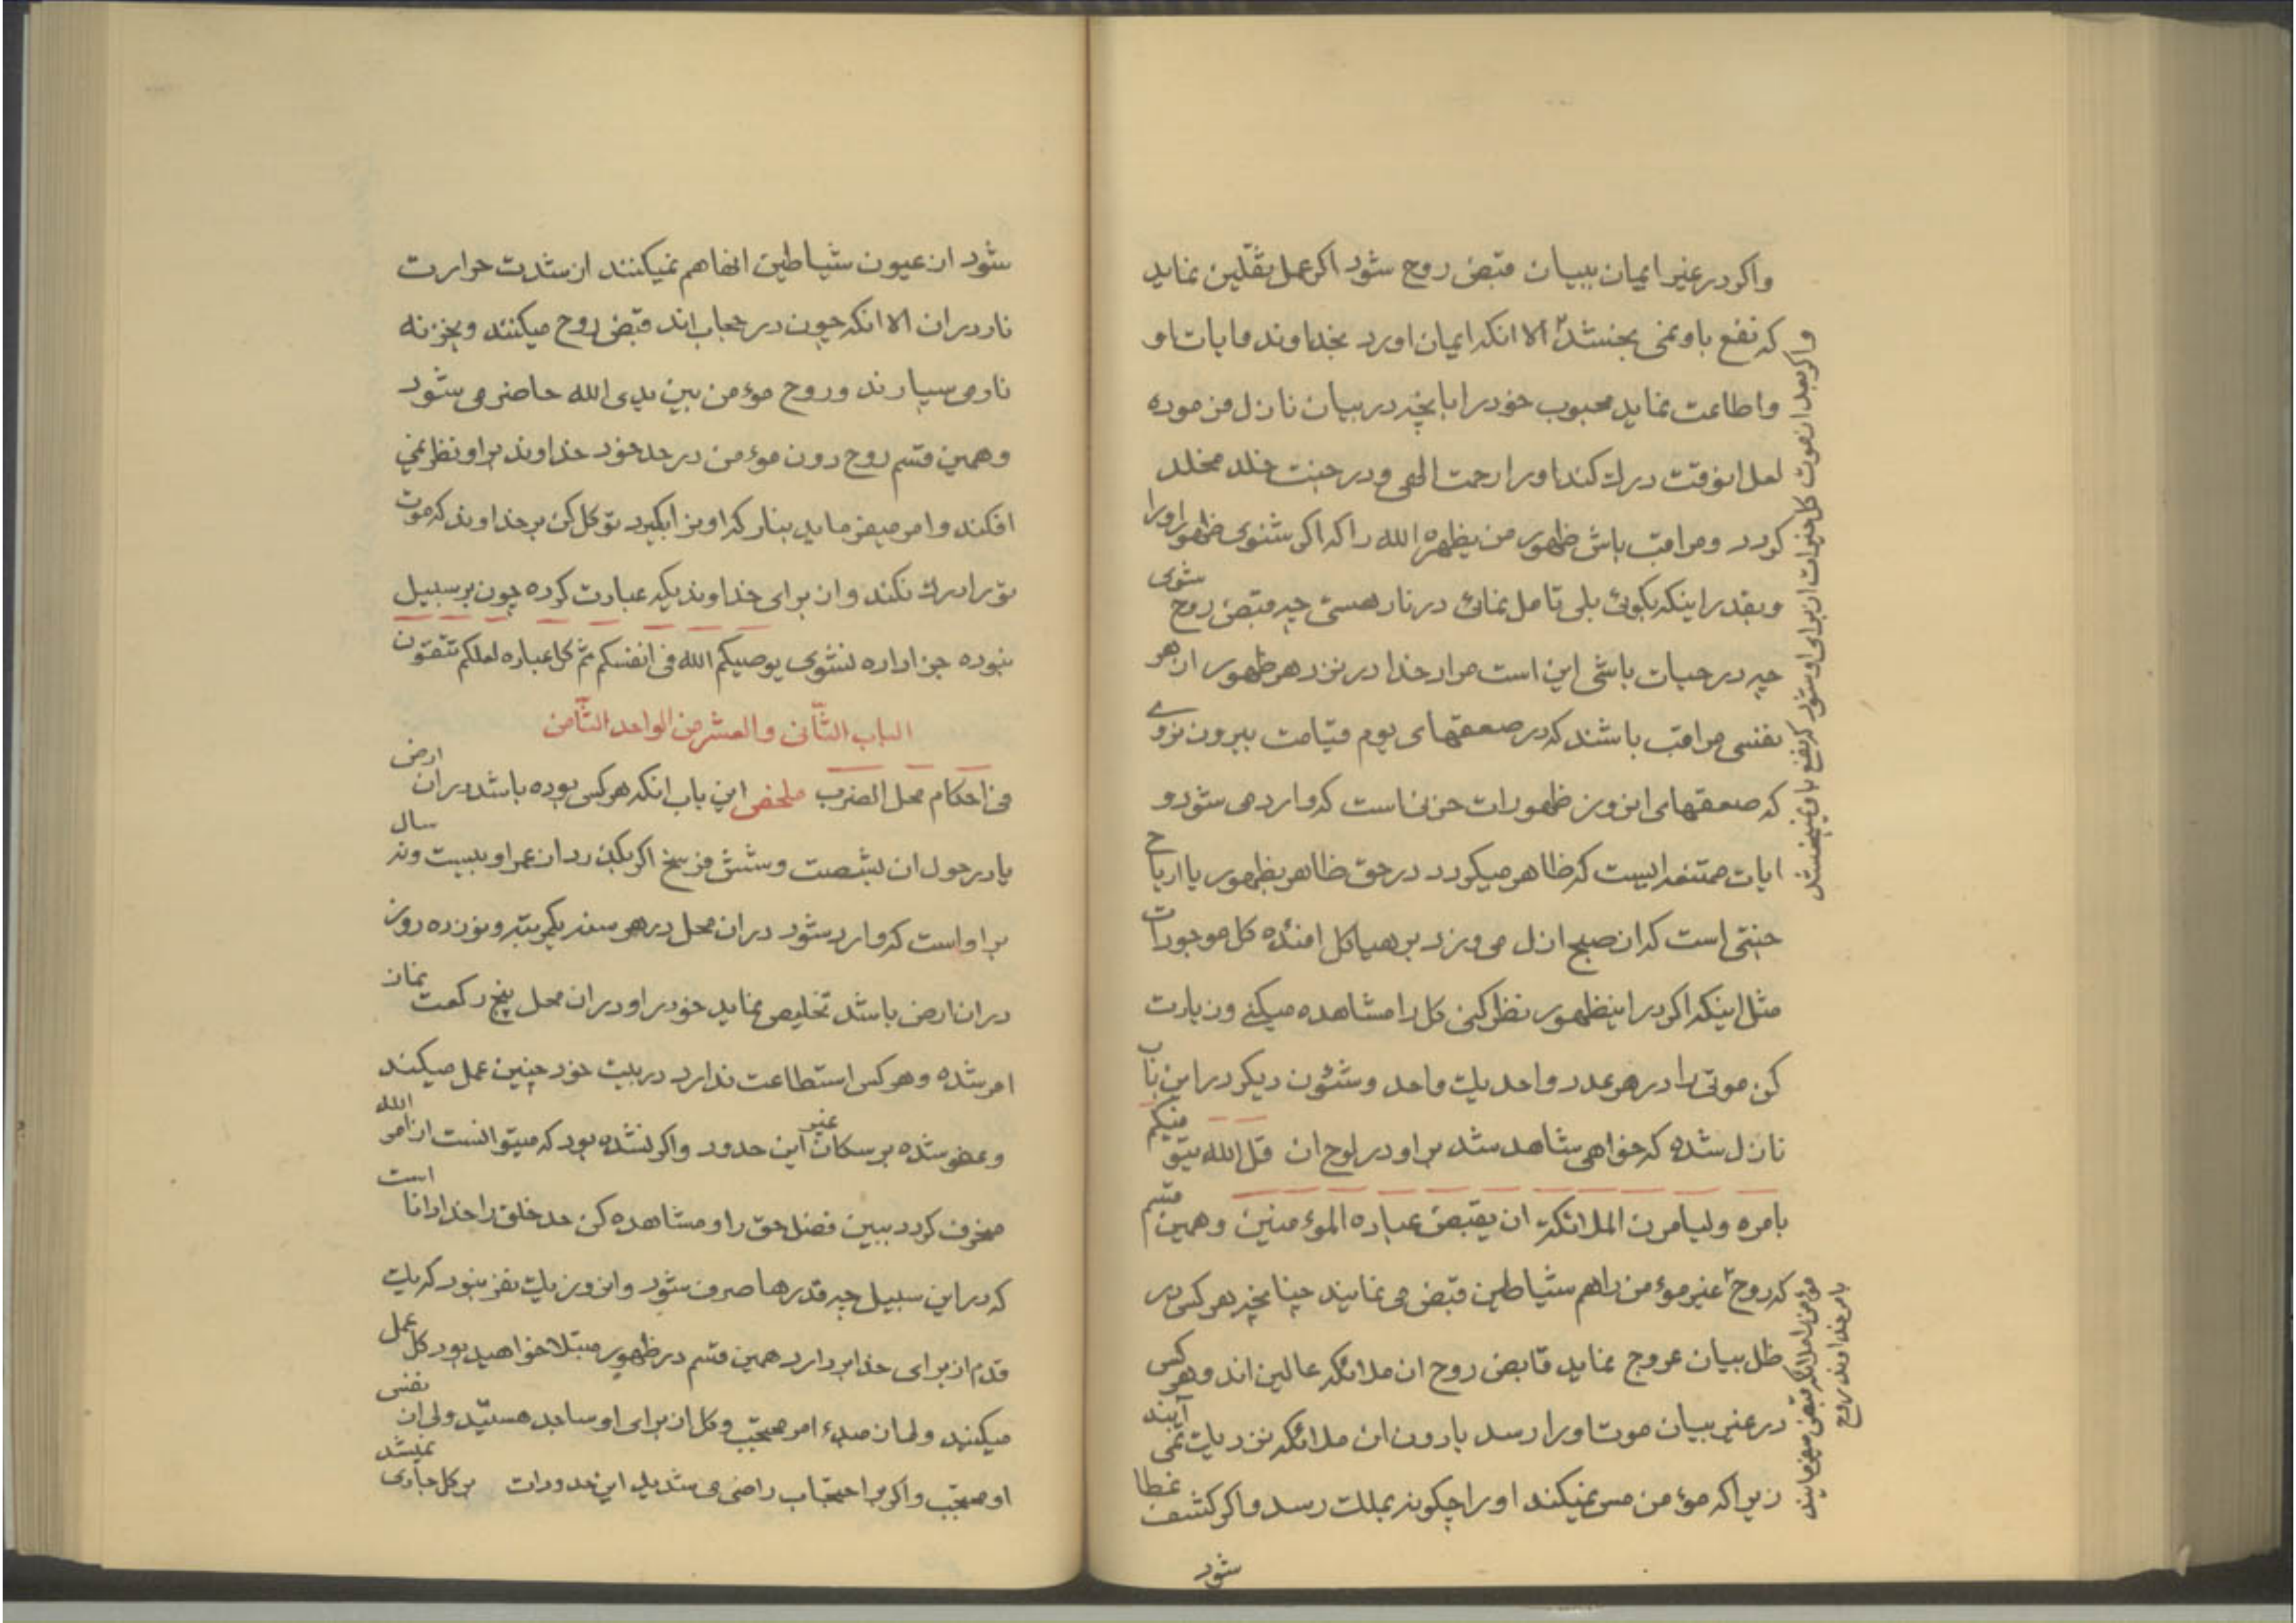 واکر در غیر ایمان ببیان قبض روح شود اکر عمل ثقلین نماید
که نفع باو نمی بخشد الا انکه ایمان اورد بخداوند و ایات او
و اطاعت نماید محبوب خود را بانچه در بیان نازل فرموده
لعل انوقت درک کند او را رحمت الهی و در جنت خلد مخلد
کردد و مراقب باش ظهور من یظهره الله را که اکر شنوی ظهور او را
و بقدر اینکه بکوئی بلی تامل نمائی در نار هستی چه قبض روح شوی
چه در حیات باشی این است مراد خدا در نزد هر ظهور ان هر
نفسی مراقب باشند که در صعقهای یوم قیامت بیرون نروے
که صعقهای انروز ظهورات حزنی است که وارد می شود و
ایات ممتنعه ایست که ظاهر میکردد در حق ظاهر بظهور یا اریاح
جنتی است که از صبح ازل می وزد بر هیاکل افئده کل موجودات
مثل اینکه اکر در اینظهور نظر کنی کل را مشاهده میکنی و زیارت
کن موتی را در هر عدد واحد یک واحد و شئون دیکر در این باب
نازل شده که خواهی شاهد شد بر او در لوح ان قل الله یتوفیکم
بامره ولیامرن الملائکة ان یقبضن عباده المؤمنین و همین قسم
که روح غیر مؤمن را هم شیاطین قبض می نمایند چنانچه هر کس در
ظل بیان عروج نماید قابض روح ان ملائکه عالین اند و هر کس
در غیر بیان موت او را رسد بادون ان ملائکه نزدیک نمی آیند
زیرا که مؤمن مس نمیکند او را چکونه بملک رسد و اکر کشف غطا
شود
و اکر بعد از موت کل خیرات از برای او شود که نفع باو نمیبخشد
مؤمن را ملائکه قبض میفرمایند
بامر خداوند روح
شود از عیون شیاطین انها هم نمیکنند از شدت حرارت
نار در ان الا انکه چون در حجاب اند قبض روح میکنند و بخزنه
نار می سپارند و روح مؤمن بین یدی الله حاضر می شود
و همین قسم روح دون مؤمن در حد خود خداوند بر او نظر نمی
افکند و امر میفرماید بنار که او را بکیرد توکل کن بر خداوند که موت
تو را درک نکند و از برای خداوندیکه عبادت کرده چون بر سبیل
نبوده جزا داده نشوی یوصیکم الله فی انفسکم ثم کل عباده لعلکم تتقون
الباب الثانی والعشر من الواحد الثامن
فی احکام محل الضرب ملخص این باب انکه هر کس بوده باشد در ان ارض
یا در حول ان بشصت و شش فرسخ اکر بکذرد از عمر او بیست و نه سال
بر او است که وارد شود در ان محل در هر سنه یکمرتبه و نوزده روز
در ان ارض باشد تخلیص نماید خود را و در ان محل پنج رکعت نماز
امر شده و هر کس استطاعت ندارد در بیت خود چنین عمل میکند
و عفو شده بر سکان غیر این حدود و اکر نشده بود که میتوانست از امر الله
منحرف کردد ببین فضل حق را و مشاهده کن حد خلق را خدا دانا است
که در این سبیل چه قدرها صرف شود و انروز یک نفر نبود که یک
قدم از برای خدا بردارد همین قسم در ظهور مبتلا خواهید بود کل عمل
میکنید ولی از مبدء امر محتجب و کل از برای او ساجد هستید ولی از نفس
او محتجب و اکر بر احتجاب راضی می شدید این حدودات بر کل جاری نمیشد